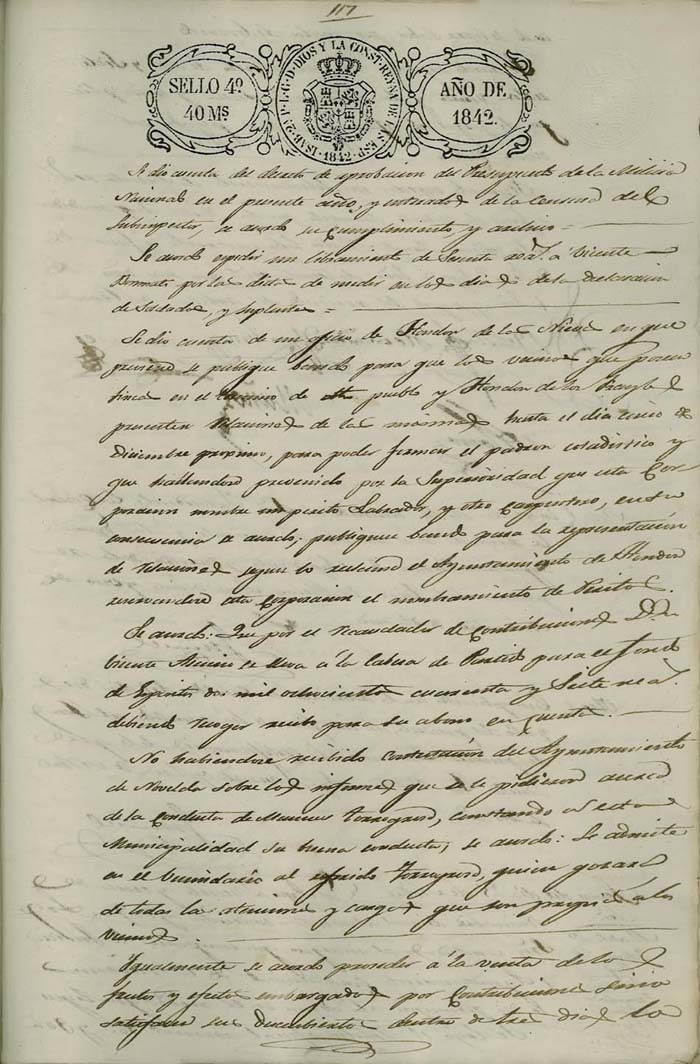 117
SELLO 4º
40 Ms
ISAB. 2ª P. L. G. D. DIOS Y LA CONST. REYNA DE LAS ESP.
1842
AÑO DE
1842.
dio cuenta del decreto de aprobacion del Presupuesto de la Milicia
Nacional en el presente año, y enterados de la Censura del
Subinspector, se acordo su cumplimiento y archivo =
Se acordo expedir un libramiento de Sesenta a Vicente
por las dietas de medir en los dias de la declaracion
de Soldados, y Suplentes =
Se dio cuenta de un oficio de Hondon de las Nieves en que
se publique bando para que los vecinos que posean
fincas en el termino de pueblo y Hondon de los
presenten relaciones de las mismas hasta el dia cinco de
Diciembre proximo, para poder formar el padron estadistico y
que hallandose prevenido por la Superioridad que esta Cor-
poracion nombre un perito Labrador, y otro Carpintero, en su
consecuencia se acordo; publiquese bando para la representación
de relaciones segun lo el Ayuntamiento de Hondon
esta Corporacion el nombramiento de Peritos.
Se acordo: Que por el recaudador de Contribuciones Dn
Vicente se lleva á la Cabeza de Partido para el fondo
de Espositos dos mil ochocientos cuarenta y Siete
debiendo recoger recibo para su abono en Cuenta.
No habiendose recibido contestación del Ayuntamiento
de Novelda sobre los informes que se le pidieron acerca
de la Conducta de Torregrosa, constando a esta
Municipalidad su buena conducta, se acordo: Se admite
en el Vecindario al referido Torregrosa, quien gozará
de todas las atenciones y cargos que son propios a los
vecinos.
Igualmente se acordo proceder á la venta de los
frutos y efectos embargados por Contribuciones
satisfacen sus descubiertos dentro de tres dias